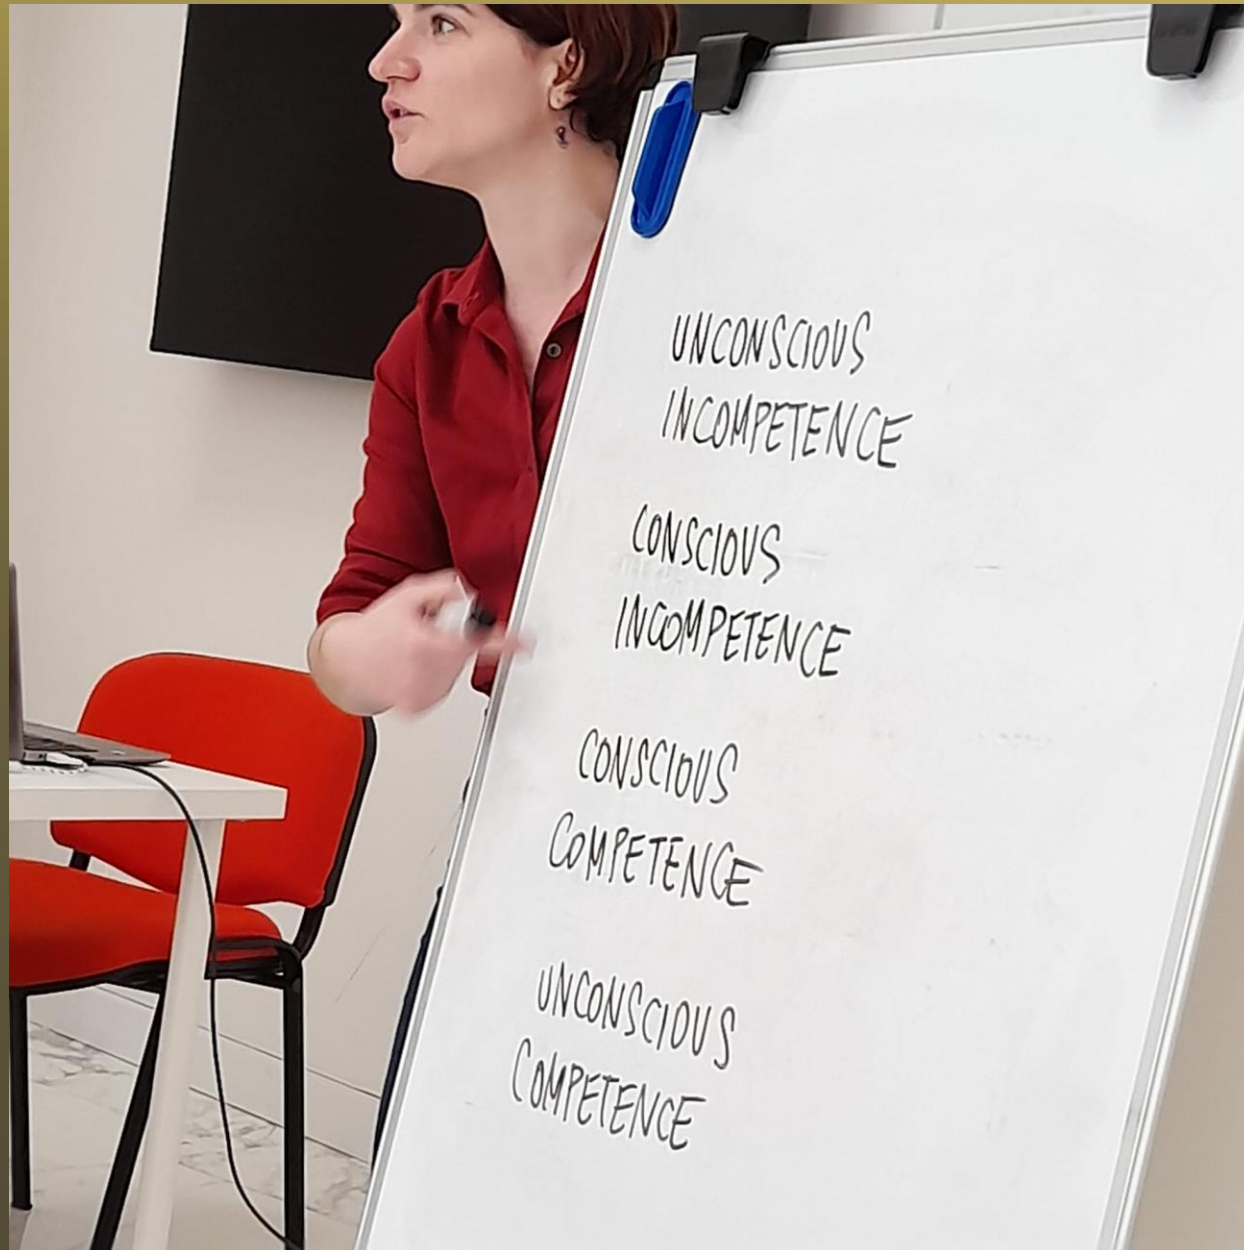 UNCONSCIOUS
INCOMPETENCE
CONSCIOUS
INCOMPETENCE
CONSCIOUS
COMPETENCE
UNCONSCIOUS
COMPETENCE